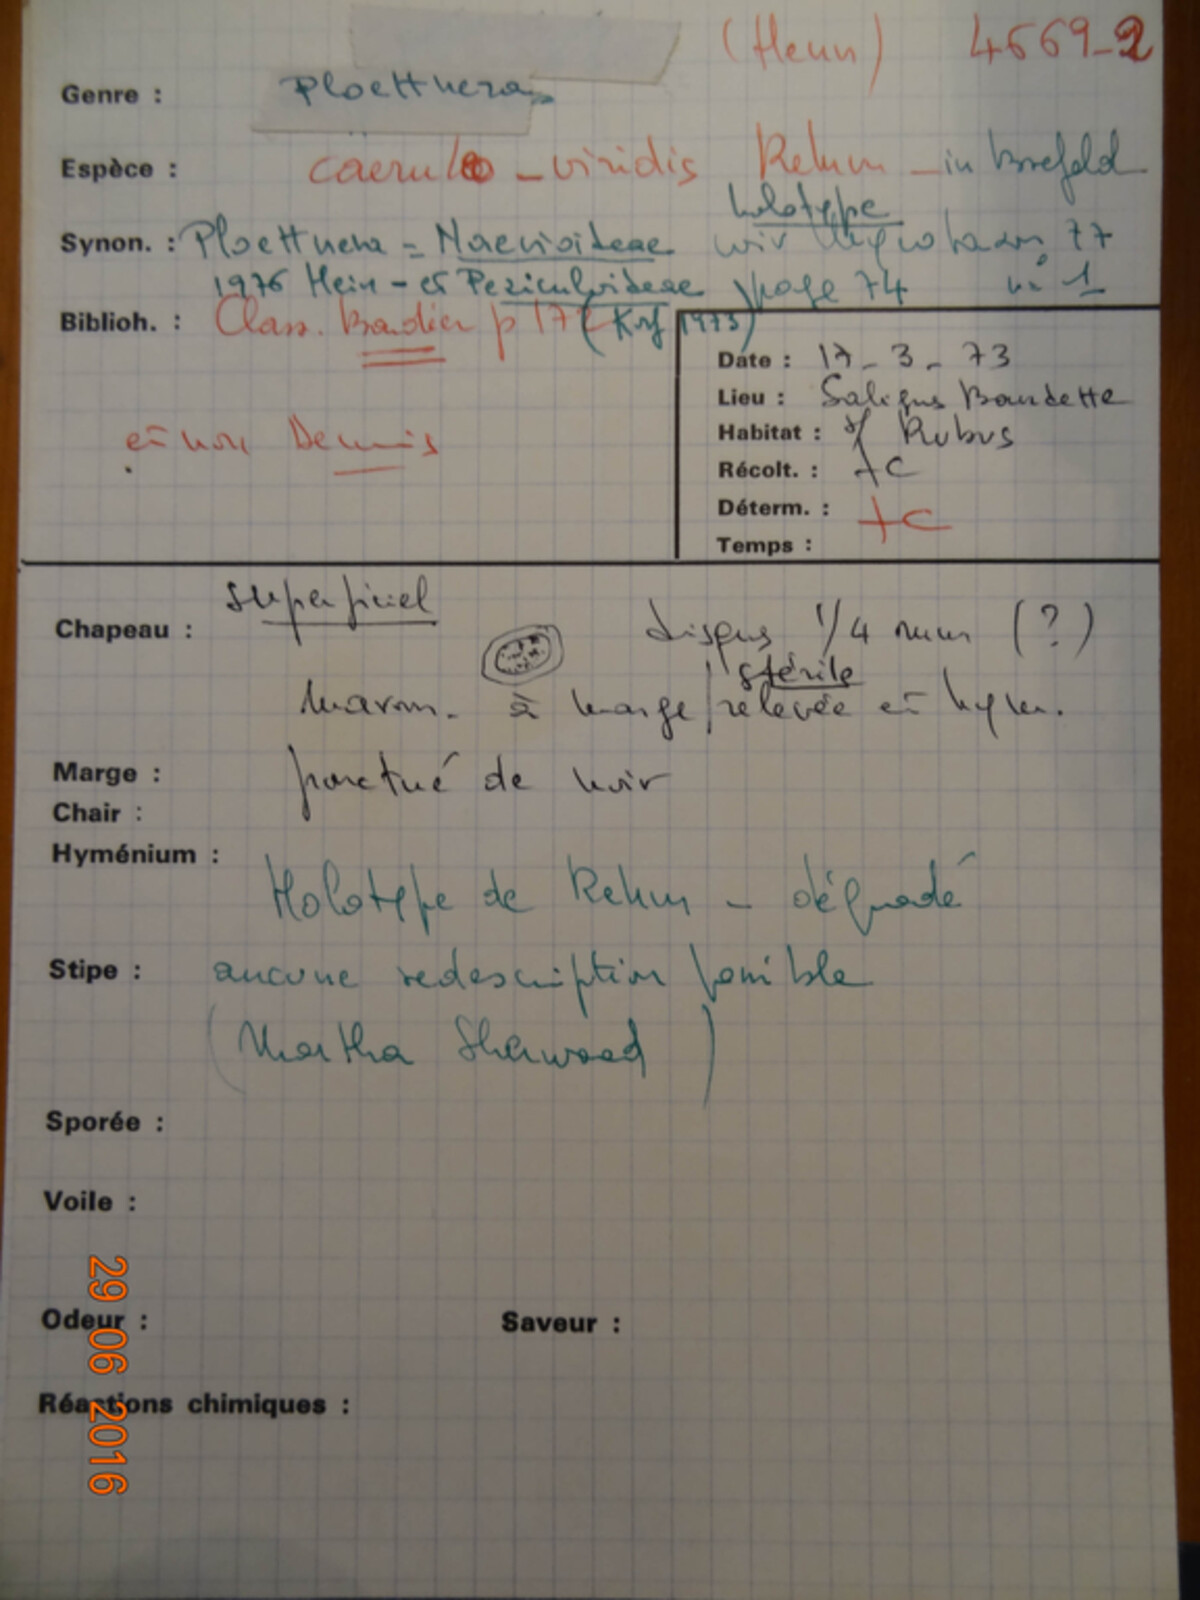 (Henn) 4669-2
Genre : Ploettnera
Espèce : caeruleo - viridis Rehm - in Brefeld
holotype
Synon. : Ploettnera = Naevioideae voir 77
1976 Hein - et Peziculoideae page 74 n° 1
Biblioh. : Class. Boudier p 17 (Korf 1973)
Date : 17-3-73
Lieu : Baudette
et non Dennis
Habitat : s/ Rubus
Récolt. : +C
Déterm. : +C
Temps :
superficiel
Chapeau : disques 1/4 mm (?)
stérile
marron. à marge relevée et hym.
Marge : ponctué de noir
Chair :
Hyménium :
Holotype de Rehm - dégradé
Stipe : aucune redescription possible
(Martha Sherwood)
Sporée :
Voile :
Odeur : Saveur :
Réactions chimiques :
29 06 2016